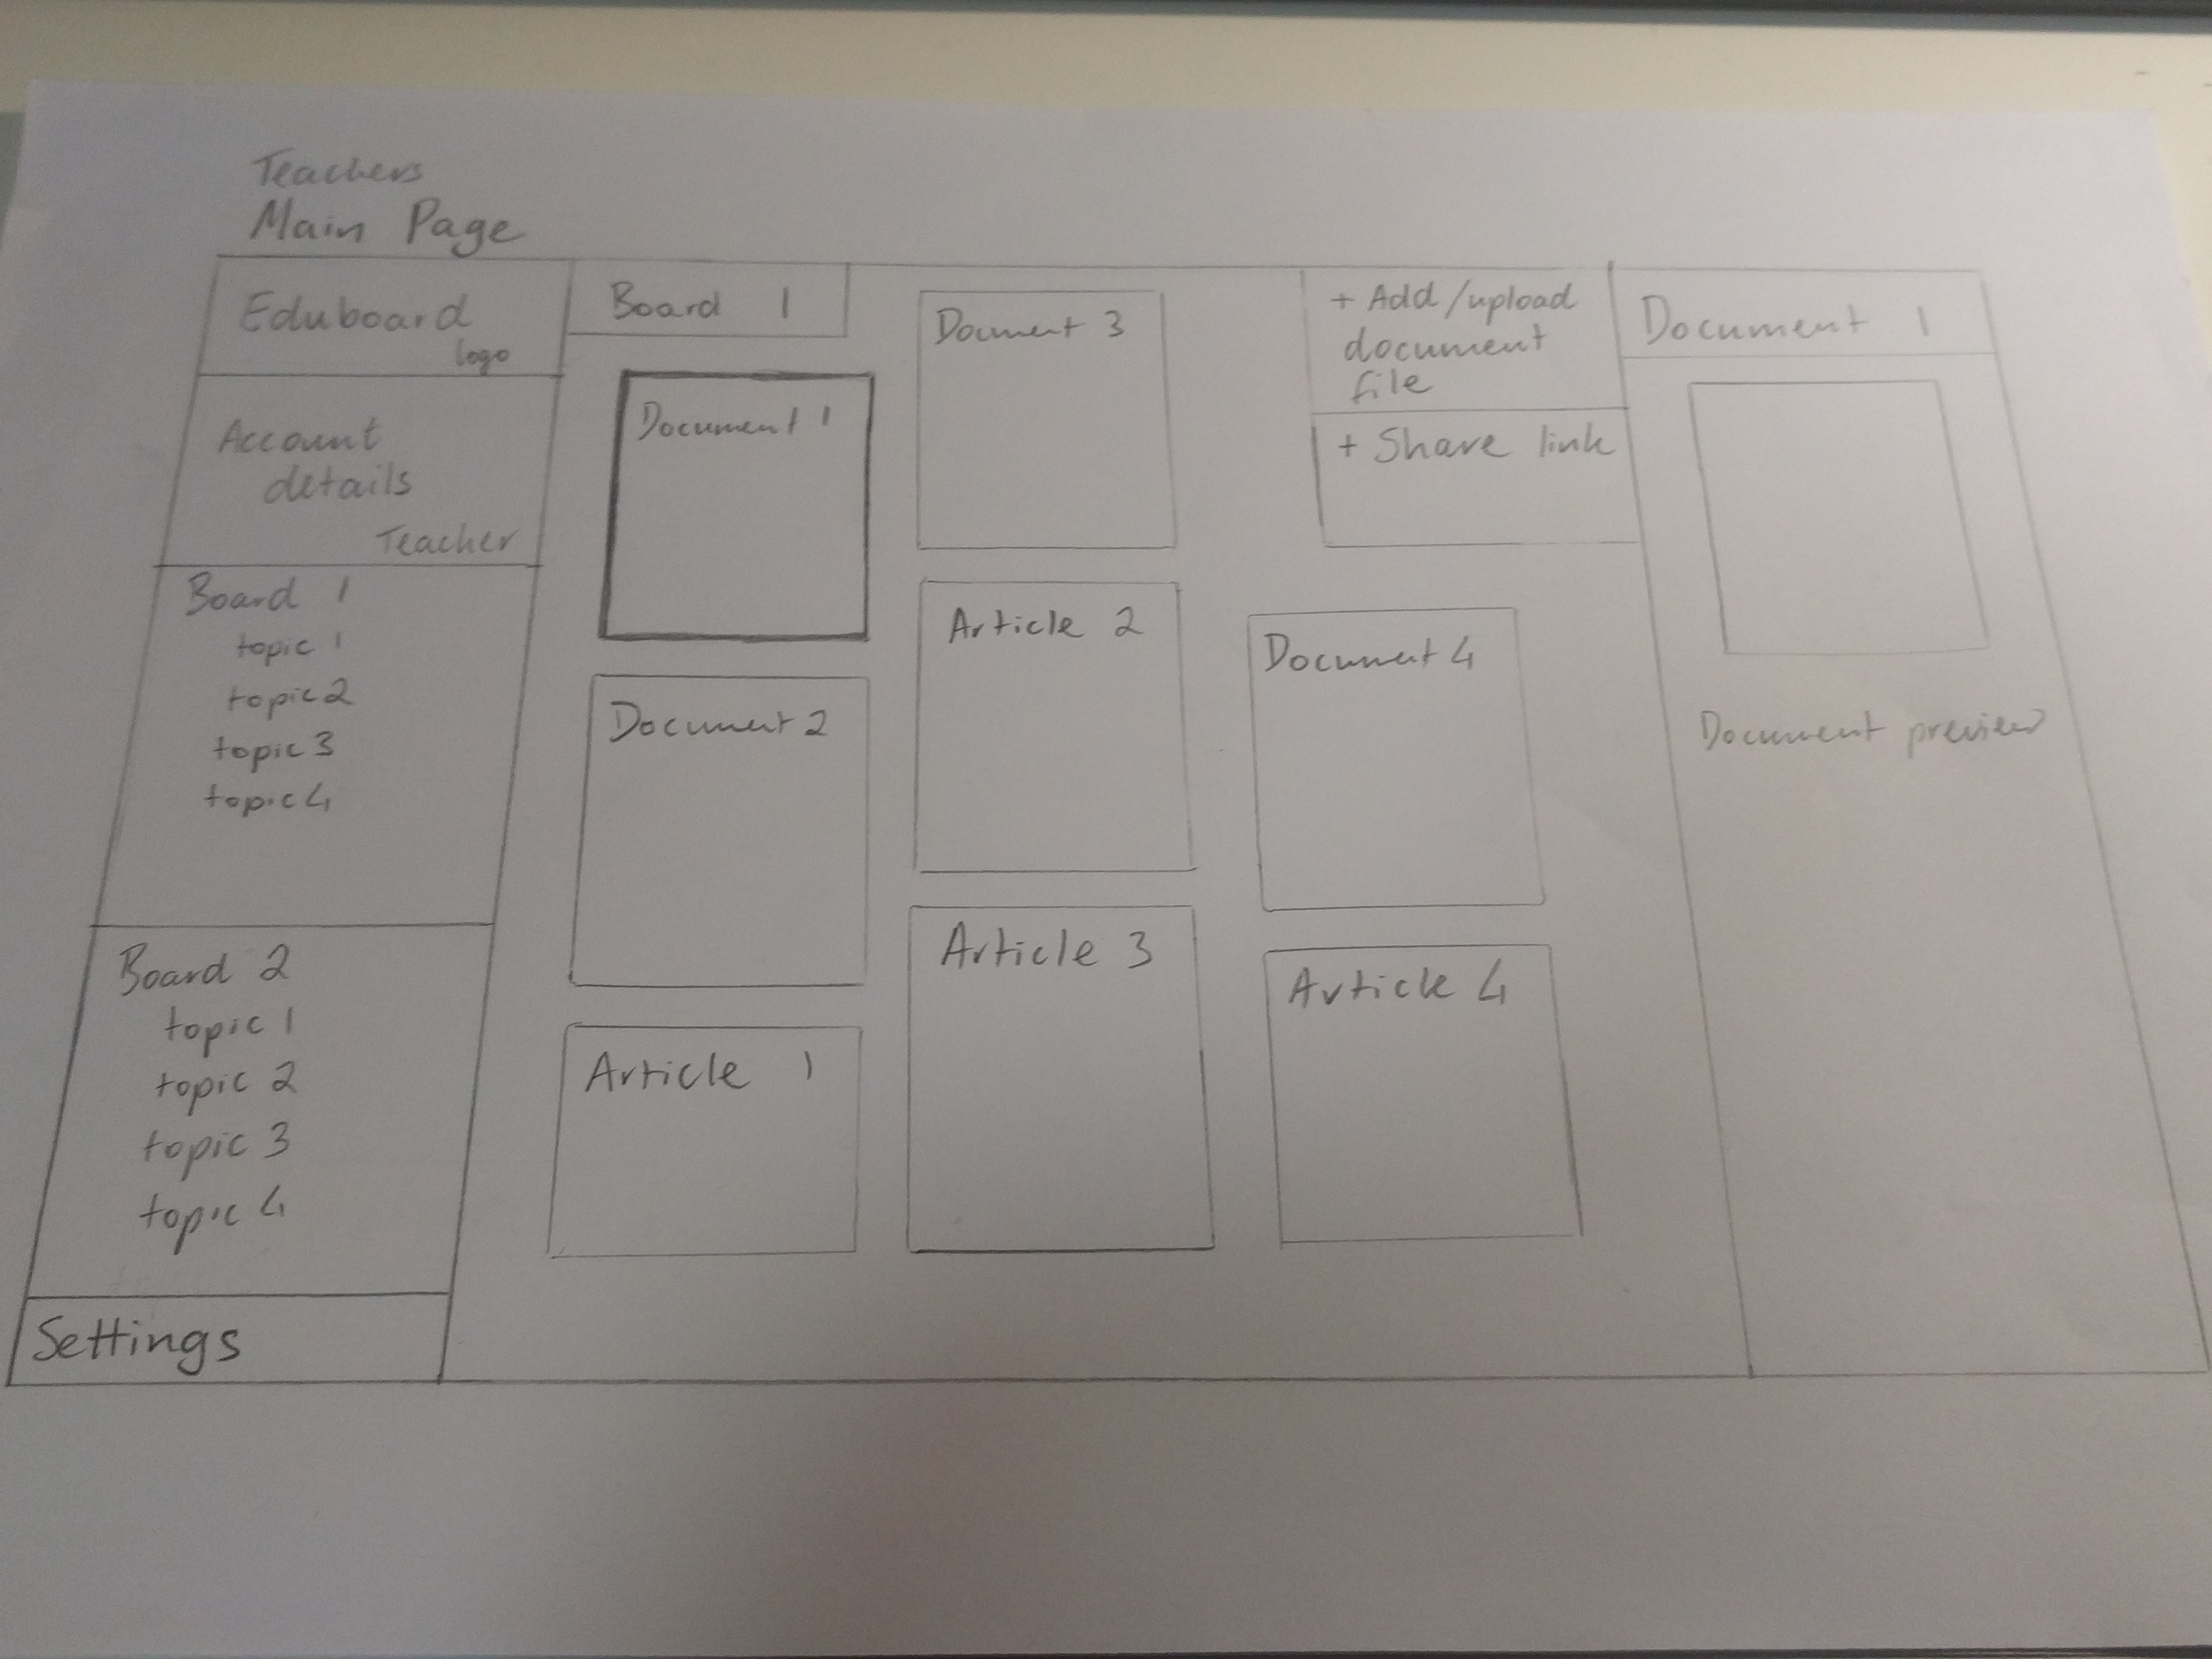 Teachers
Main Page
Eduboard
logo
Account
details
Teacher
Board 1
topic 1
topic 2
topic 3
topic 4
Board 2
topic 1
topic 2
topic 3
topic 4
Settings
Board 1
Document 1
Document 2
Article 1
Document 3
Article 2
Article 3
+ Add/upload
document
file
+ Share link
Document 4
Article 4
Document 1
Document preview